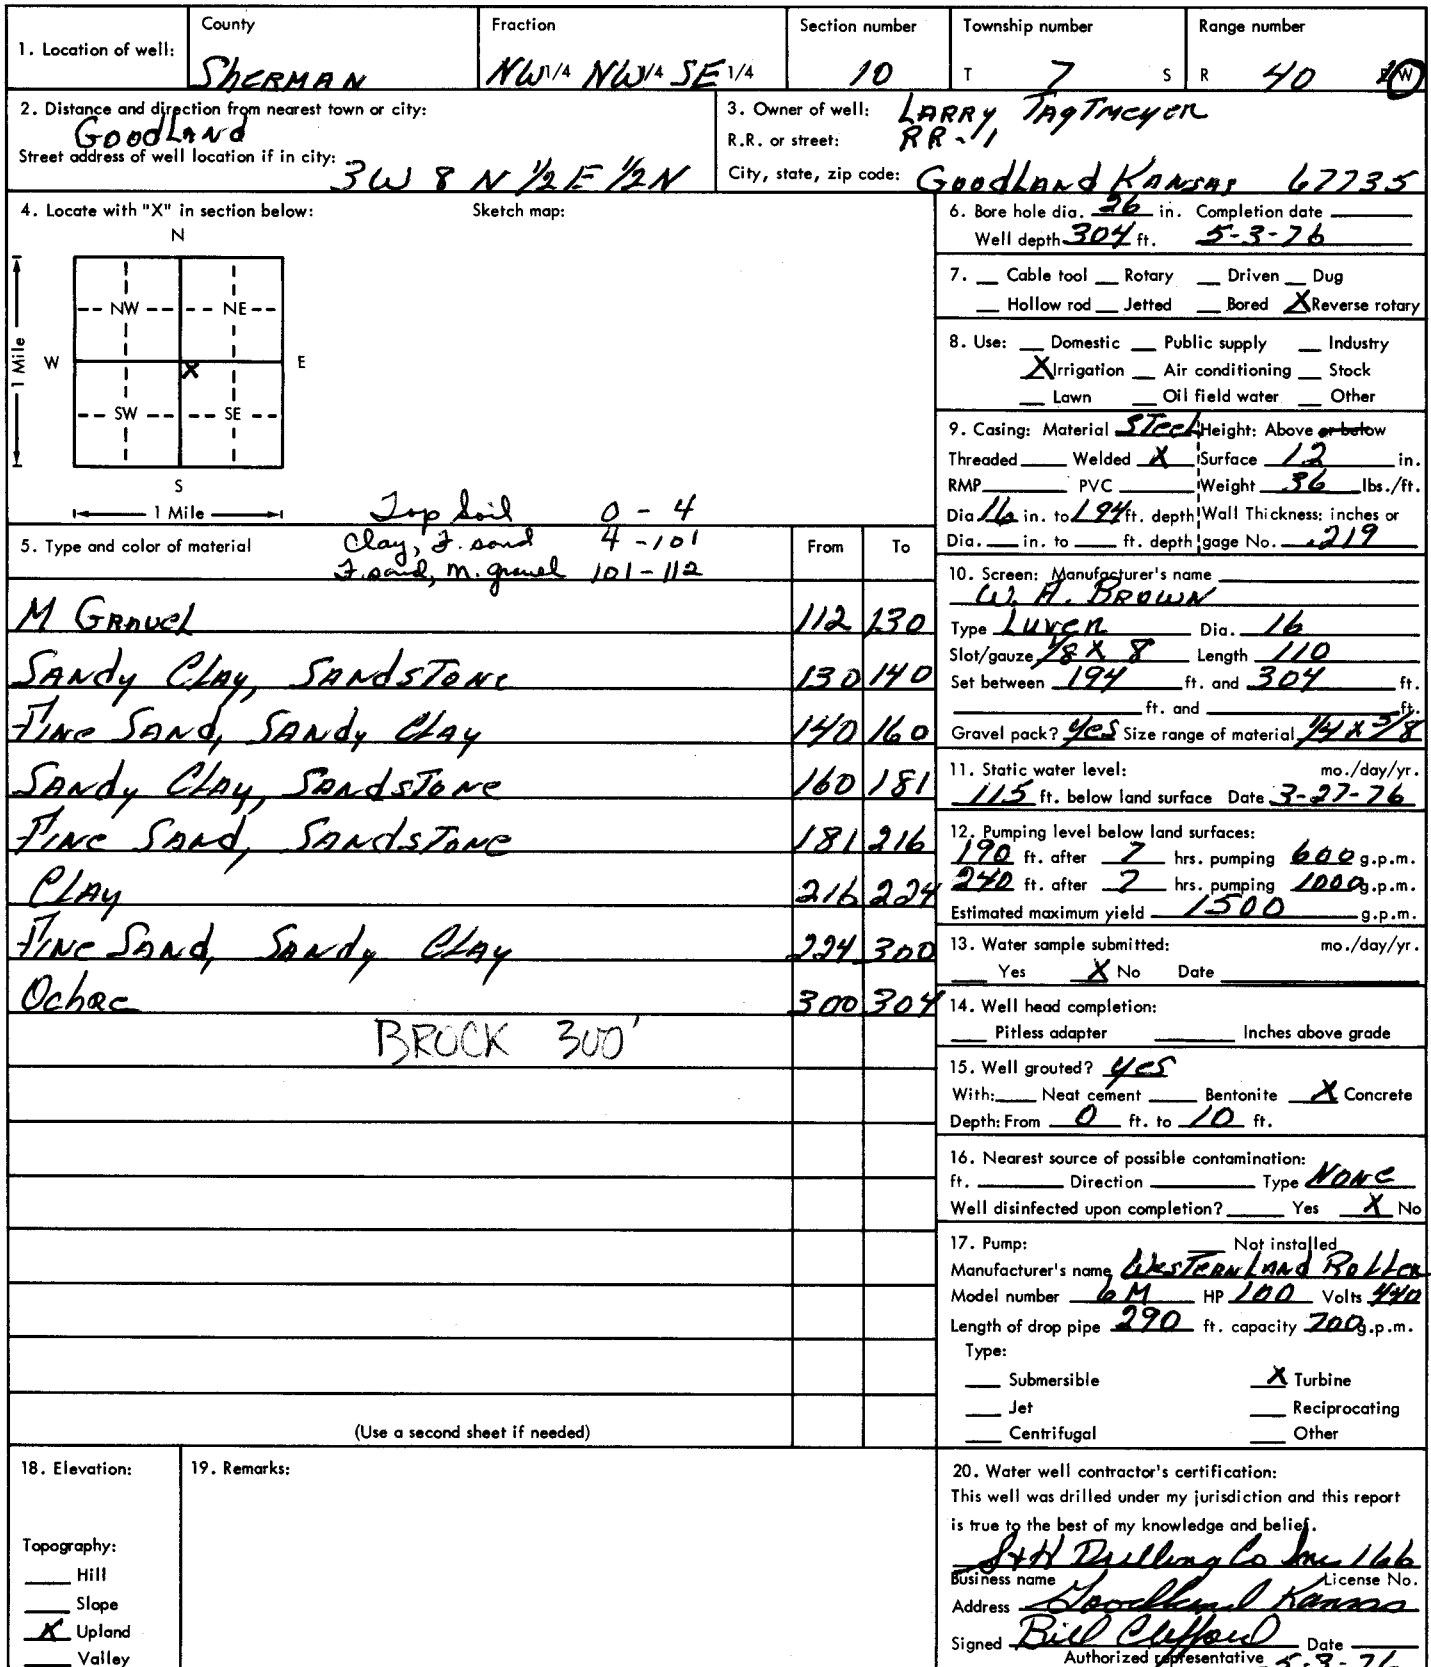 County Fraction Section number Township number Range number
1. Location of well: SHERMAN NW 1/4 NW 1/4 SE 1/4 10 T 7 S R 40 W
2. Distance and direction from nearest town or city:
GOODLAND
Street address of well location if in city:
3W 8 N 1/2 E 1/2 N
3. Owner of well: LARRY TAGTMEYER
R.R. or street: RR-1
City, state, zip code: GOODLAND KANSAS 67735
4. Locate with "X" in section below: Sketch map:
N
NW NE
W X E
SW SE
S
1 Mile
1 Mile
Top Soil 0 - 4
5. Type and color of material Clay, F. sand 4 - 101 From To
F. sand, M. gravel 101 - 112
M GRAVEL 112 130
SANDY CLAY, SANDSTONE 130 140
FINE SAND, SANDY CLAY 140 160
SANDY CLAY, SANDSTONE 160 181
FINE SAND, SANDSTONE 181 216
CLAY 216 224
FINE SAND, SANDY CLAY 224 300
Ochre 300 304
BROCK 300'
(Use a second sheet if needed)
6. Bore hole dia. 26 in. Completion date
Well depth 304 ft. 5-3-76
7. Cable tool Rotary Driven Dug
Hollow rod Jetted Bored X Reverse rotary
8. Use: Domestic Public supply Industry
X Irrigation Air conditioning Stock
Lawn Oil field water Other
9. Casing: Material STeel Height: Above or below
Threaded Welded X Surface 12 in.
RMP PVC Weight 36 lbs./ft.
Dia 16 in. to 194 ft. depth Wall Thickness: inches or
Dia. in. to ft. depth gage No. .219
10. Screen: Manufacturer's name
W. A. BROWN
Type Luver Dia. 16
Slot/gauze 1/8 X 8 Length 110
Set between 194 ft. and 304 ft.
ft. and ft.
Gravel pack? yes Size range of material 1/4 x 3/8
11. Static water level: mo./day/yr.
115 ft. below land surface Date 3-27-76
12. Pumping level below land surfaces:
190 ft. after 7 hrs. pumping 600 g.p.m.
240 ft. after 7 hrs. pumping 1000 g.p.m.
Estimated maximum yield 1500 g.p.m.
13. Water sample submitted: mo./day/yr.
Yes X No Date
14. Well head completion:
Pitless adapter Inches above grade
15. Well grouted? yes
With: Neat cement Bentonite X Concrete
Depth: From 0 ft. to 10 ft.
16. Nearest source of possible contamination:
ft. Direction Type NONE
Well disinfected upon completion? Yes X No
17. Pump: Not installed
Manufacturer's name WESTERN LAND ROLLER
Model number 6 M HP 100 Volts 440
Length of drop pipe 290 ft. capacity 700 g.p.m.
Type:
Submersible X Turbine
Jet Reciprocating
Centrifugal Other
18. Elevation: 19. Remarks:
Topography:
Hill
Slope
X Upland
Valley
20. Water well contractor's certification:
This well was drilled under my jurisdiction and this report
is true to the best of my knowledge and belief.
S+H Drilling Co Inc 166
Business name License No.
Address Goodland Kansas
Signed Bill Clifford Date
Authorized representative 5-8-76